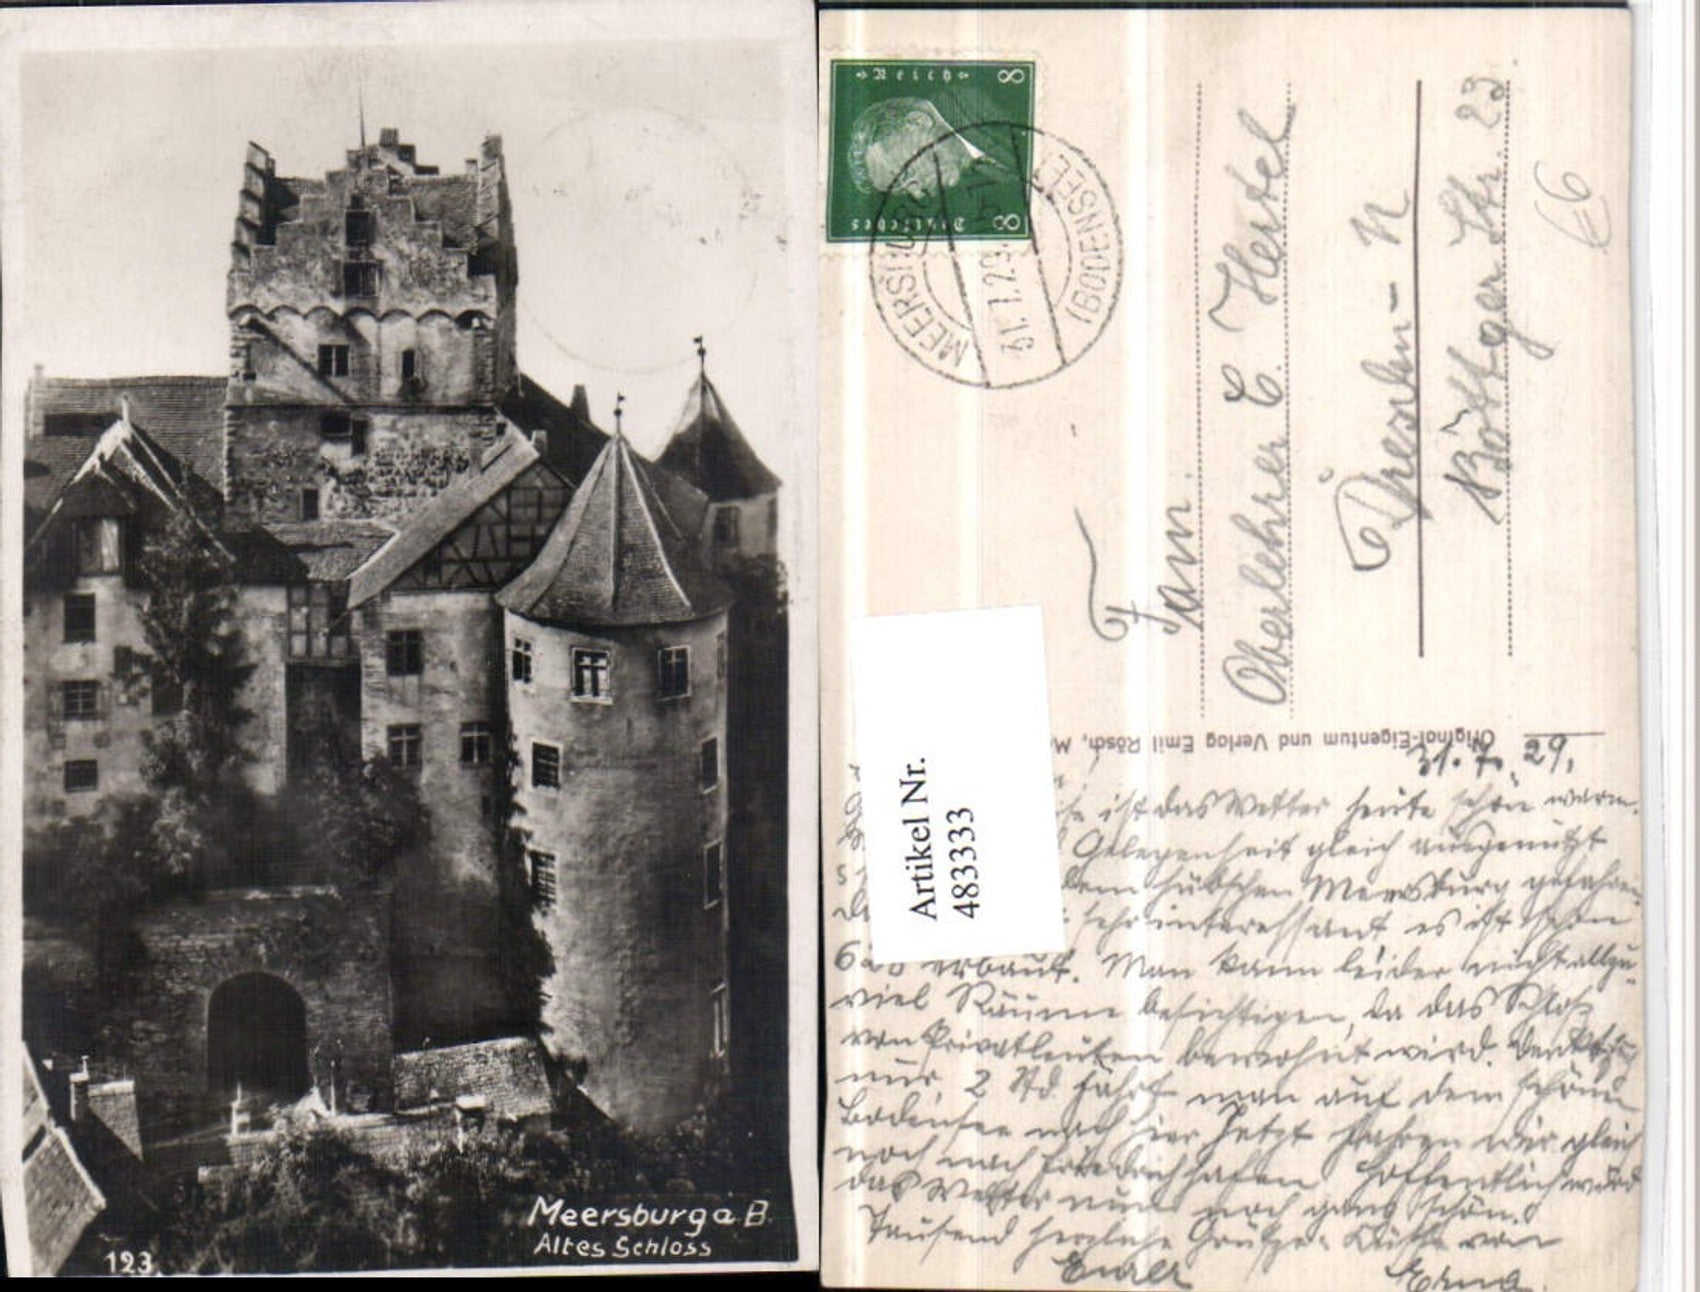 Meersburg a. B.
Altes Schloss
123
Deutsches Reich
8 8
MEERSBURG
31.7.29
(BODENSEE)
Fam.
Oberlehrer C. Hertel
Dresden-N
Böttger Str. 23.
66
Original-Eigentum und Verlag Emil Rösch, M
Artikel Nr.
483333
31.7.29.
ist das Wetter heute schön warm.
Gelegenheit gleich ausgenützt
dem hübschen Meersburg gefahren
sehr interessant es ist schon
erbaut. Man kann leider nicht allzu-
viel Räume besichtigen, da das Schloß
von Privatleuten bewohnt wird.
nur 2 Std. fährt man auf dem schönen
Bodensee nach hier. Jetzt fahren wir gleich
noch nach Friedrichshafen Hoffentlich wird
das Wetter nun noch ganz schön.
Tausend herzliche Grüße von
Eurer Erna.